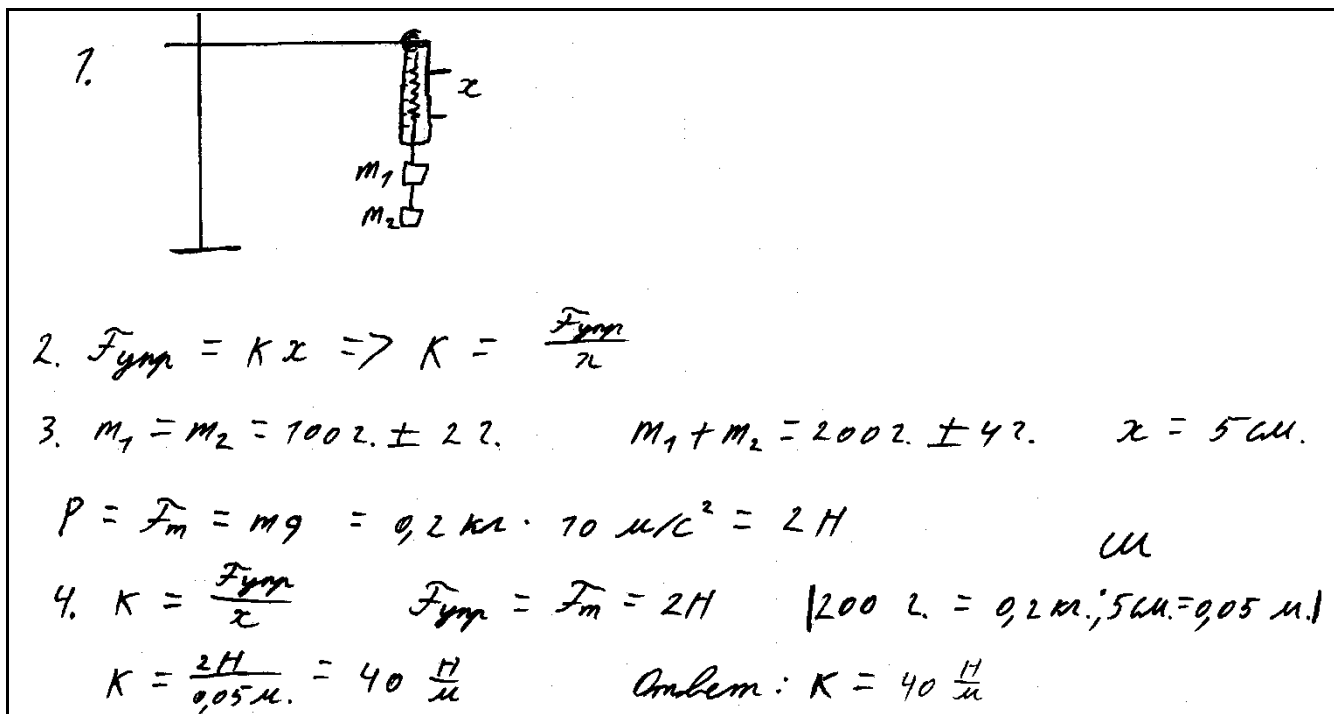 1.
x
m₁
m₂
2. Fупр = K x => K = Fупр/x
3. m₁ = m₂ = 100 г. ± 2 г. m₁ + m₂ = 200 г. ± 4 г. x = 5 см.
P = Fт = mg = 0,2 кг · 10 м/с² = 2 Н
4. K = Fупр/x Fупр = Fт = 2Н |200 г. = 0,2 кг.; 5 см. = 0,05 м.|
K = 2Н/0,05 м. = 40 Н/м Ответ: K = 40 Н/м